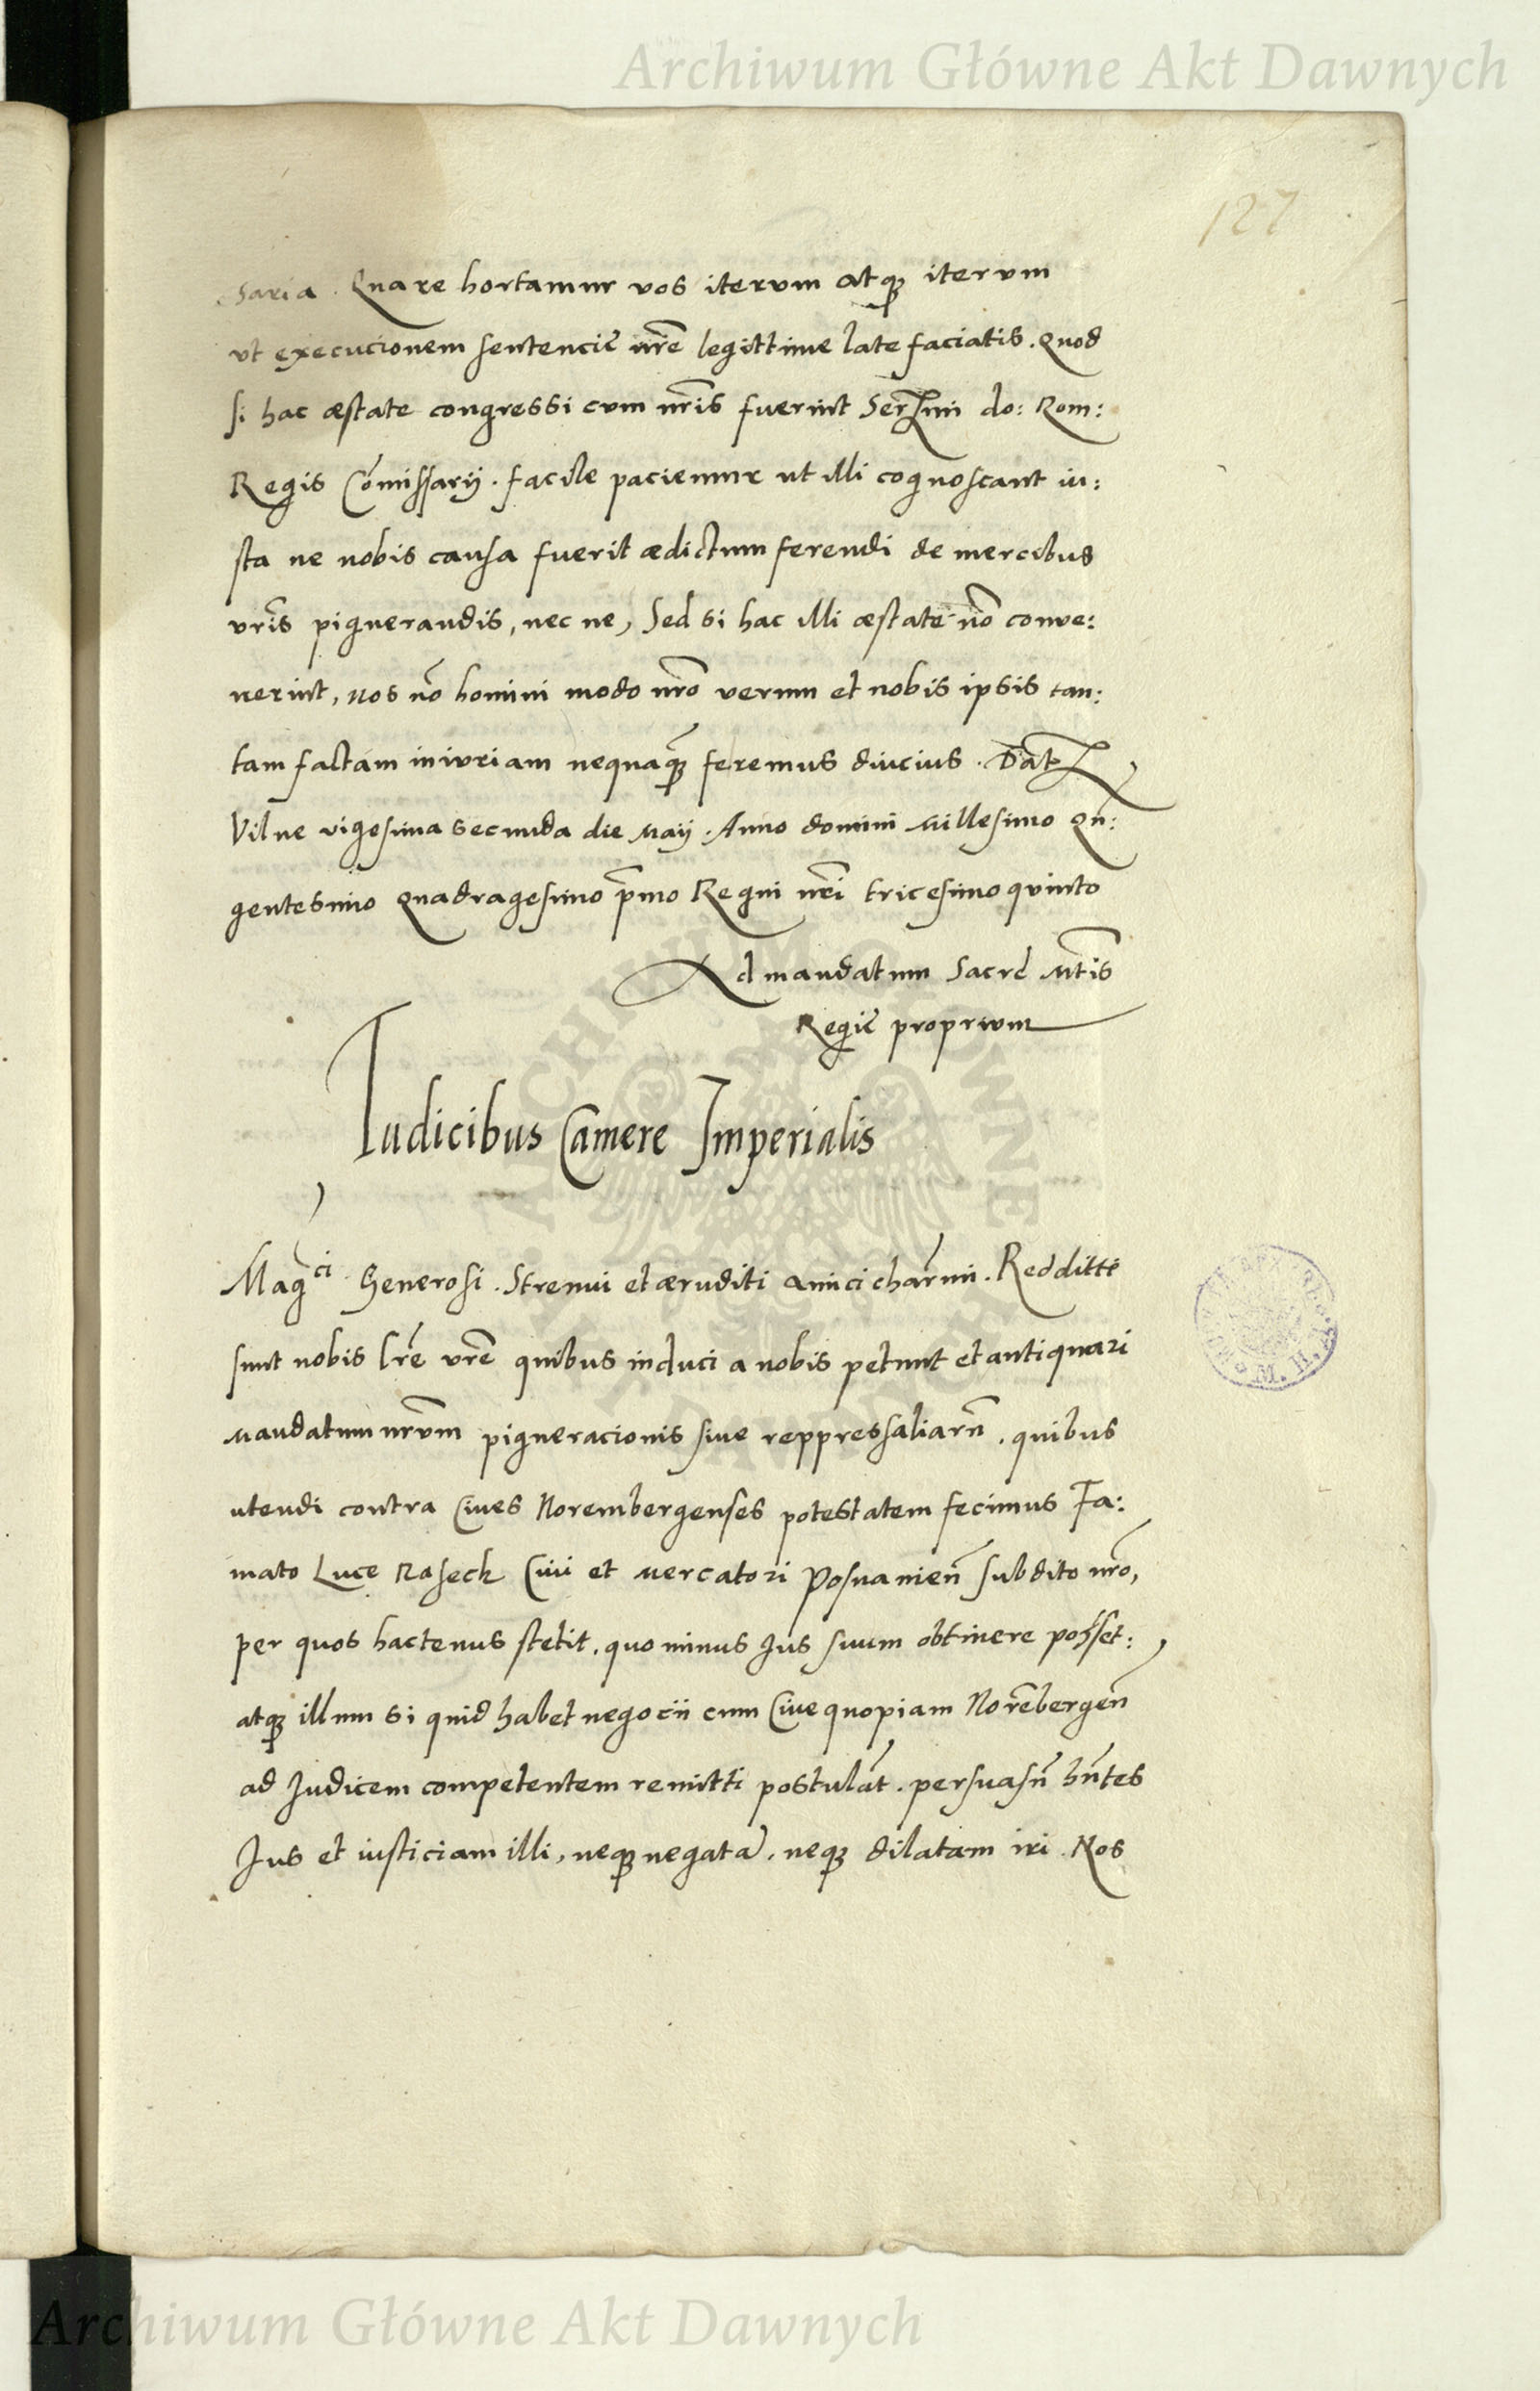 Archiwum Główne Akt Dawnych
127
saria. Quare hortamur vos iterum atq₃ iterum
vt execucionem sentencie nr̃e legittime late faciatis. Quod
si hac æstate congressi cum nr̃is fuerint Ser̃mi do: Rom:
Regis Cōmissarij. facile paciemur ut illi cognoscant iu:
sta ne nobis causa fuerit ædictum ferendi de mercibus
vr̃is pignerandis, nec ne, Sed si hac illi æstate nõ conve:
nerint, nos nõ homini modo nr̃o verum et nobis ipsis tan:
tam factam iniuriam nequaq₃ feremus diucius. Dat
Vilne vigesima secunda die Maij. Anno domini Millesimo Qñ:
gentesimo Quadragesimo p̃mo Regni nr̃i tricesimo quinto
Ad mandatum Sacrę Mt̃is
Regię proprium
Iudicibus Camere Imperialis
Mag^ci Generosi. Strenui et æruditi amici char̃mi. Redditę
sunt nobis lr̃e vr̃e quibus induci a nobis petunt et antiquari
mandatum nr̃um pigneracionis siue reppressaliarũ. quibus
utendi contra Ciues Norembergenses potestatem fecimus Fa:
mato Luce Raseck Ciui et Mercatori Posnanieñ subdito nr̃o,
per quos hactenus stetit. quo minus Jus suum obtinere posset:
atq₃ illum si quid habet negocii cum Ciue quopiam Norẽbergeñ
ad Judicem competentem remitti postulãt. persuasũ hñtes
Jus et iusticiam illi, neq₃ negatã, neq₃ dilatam iri. Nos
Archiwum Główne Akt Dawnych